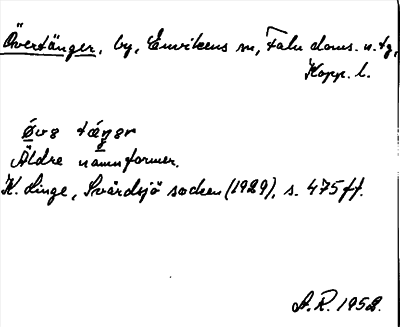 Övertänger, by, Envikens sn, Falu doms. o. tg,
Kopp. l.
Äldre namnformer.
K. Linge, Svärdsjö socken (1929), s. 475 ff.
A.R. 1952.